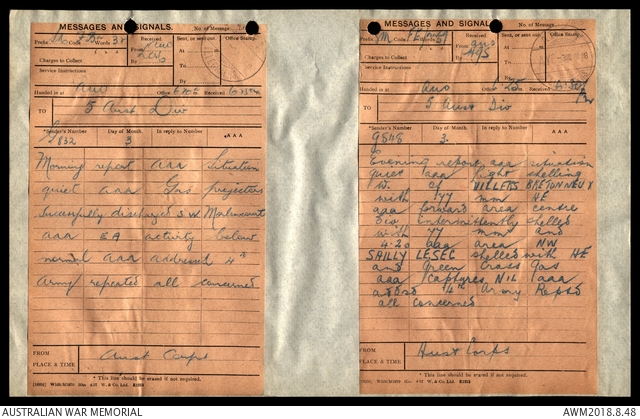 MESSAGES AND SIGNALS.
No. of Message
Prefix Code Words
Received
From
By
Sent, or sent out.
At
To
By
Office Stamp.
Charges to Collect
Service Instructions
Handed in at Office Received
TO
5 Aust Div
*Sender's Number
Day of Month
In reply to Number
AAA
832
3
Morning report aaa Situation
quiet aaa Gas projectors
successfully discharged S.W. Morlancourt
aaa EA activity below
normal aaa addressed 4th
Army repeated all concerned
FROM
PLACE & TIME
Aust Corps
* This line should be erased if not required.
MESSAGES AND SIGNALS.
No. of Message
Prefix Code Words
Received
From
By
Sent, or sent out.
At
To
By
Office Stamp.
Charges to Collect
Service Instructions
Handed in at Office Received
TO
5 Aust Div
*Sender's Number
Day of Month
In reply to Number
AAA
3.
Evening report aaa situation
quiet aaa light shelling
W. of VILLERS BRETONNEUX
with 77 mm HE
aaa forward area centre
Div intermittently shelled
with 77 mm and
4.20 aaa area NW
SAILLY LESEC shelled with HE
and Green Cross gas
aaa captures NIL aaa
4th Army Reptd
all concerned
FROM
PLACE & TIME
Aust Corps
* This line should be erased if not required.
AUSTRALIAN WAR MEMORIAL
AWM2018.8.48